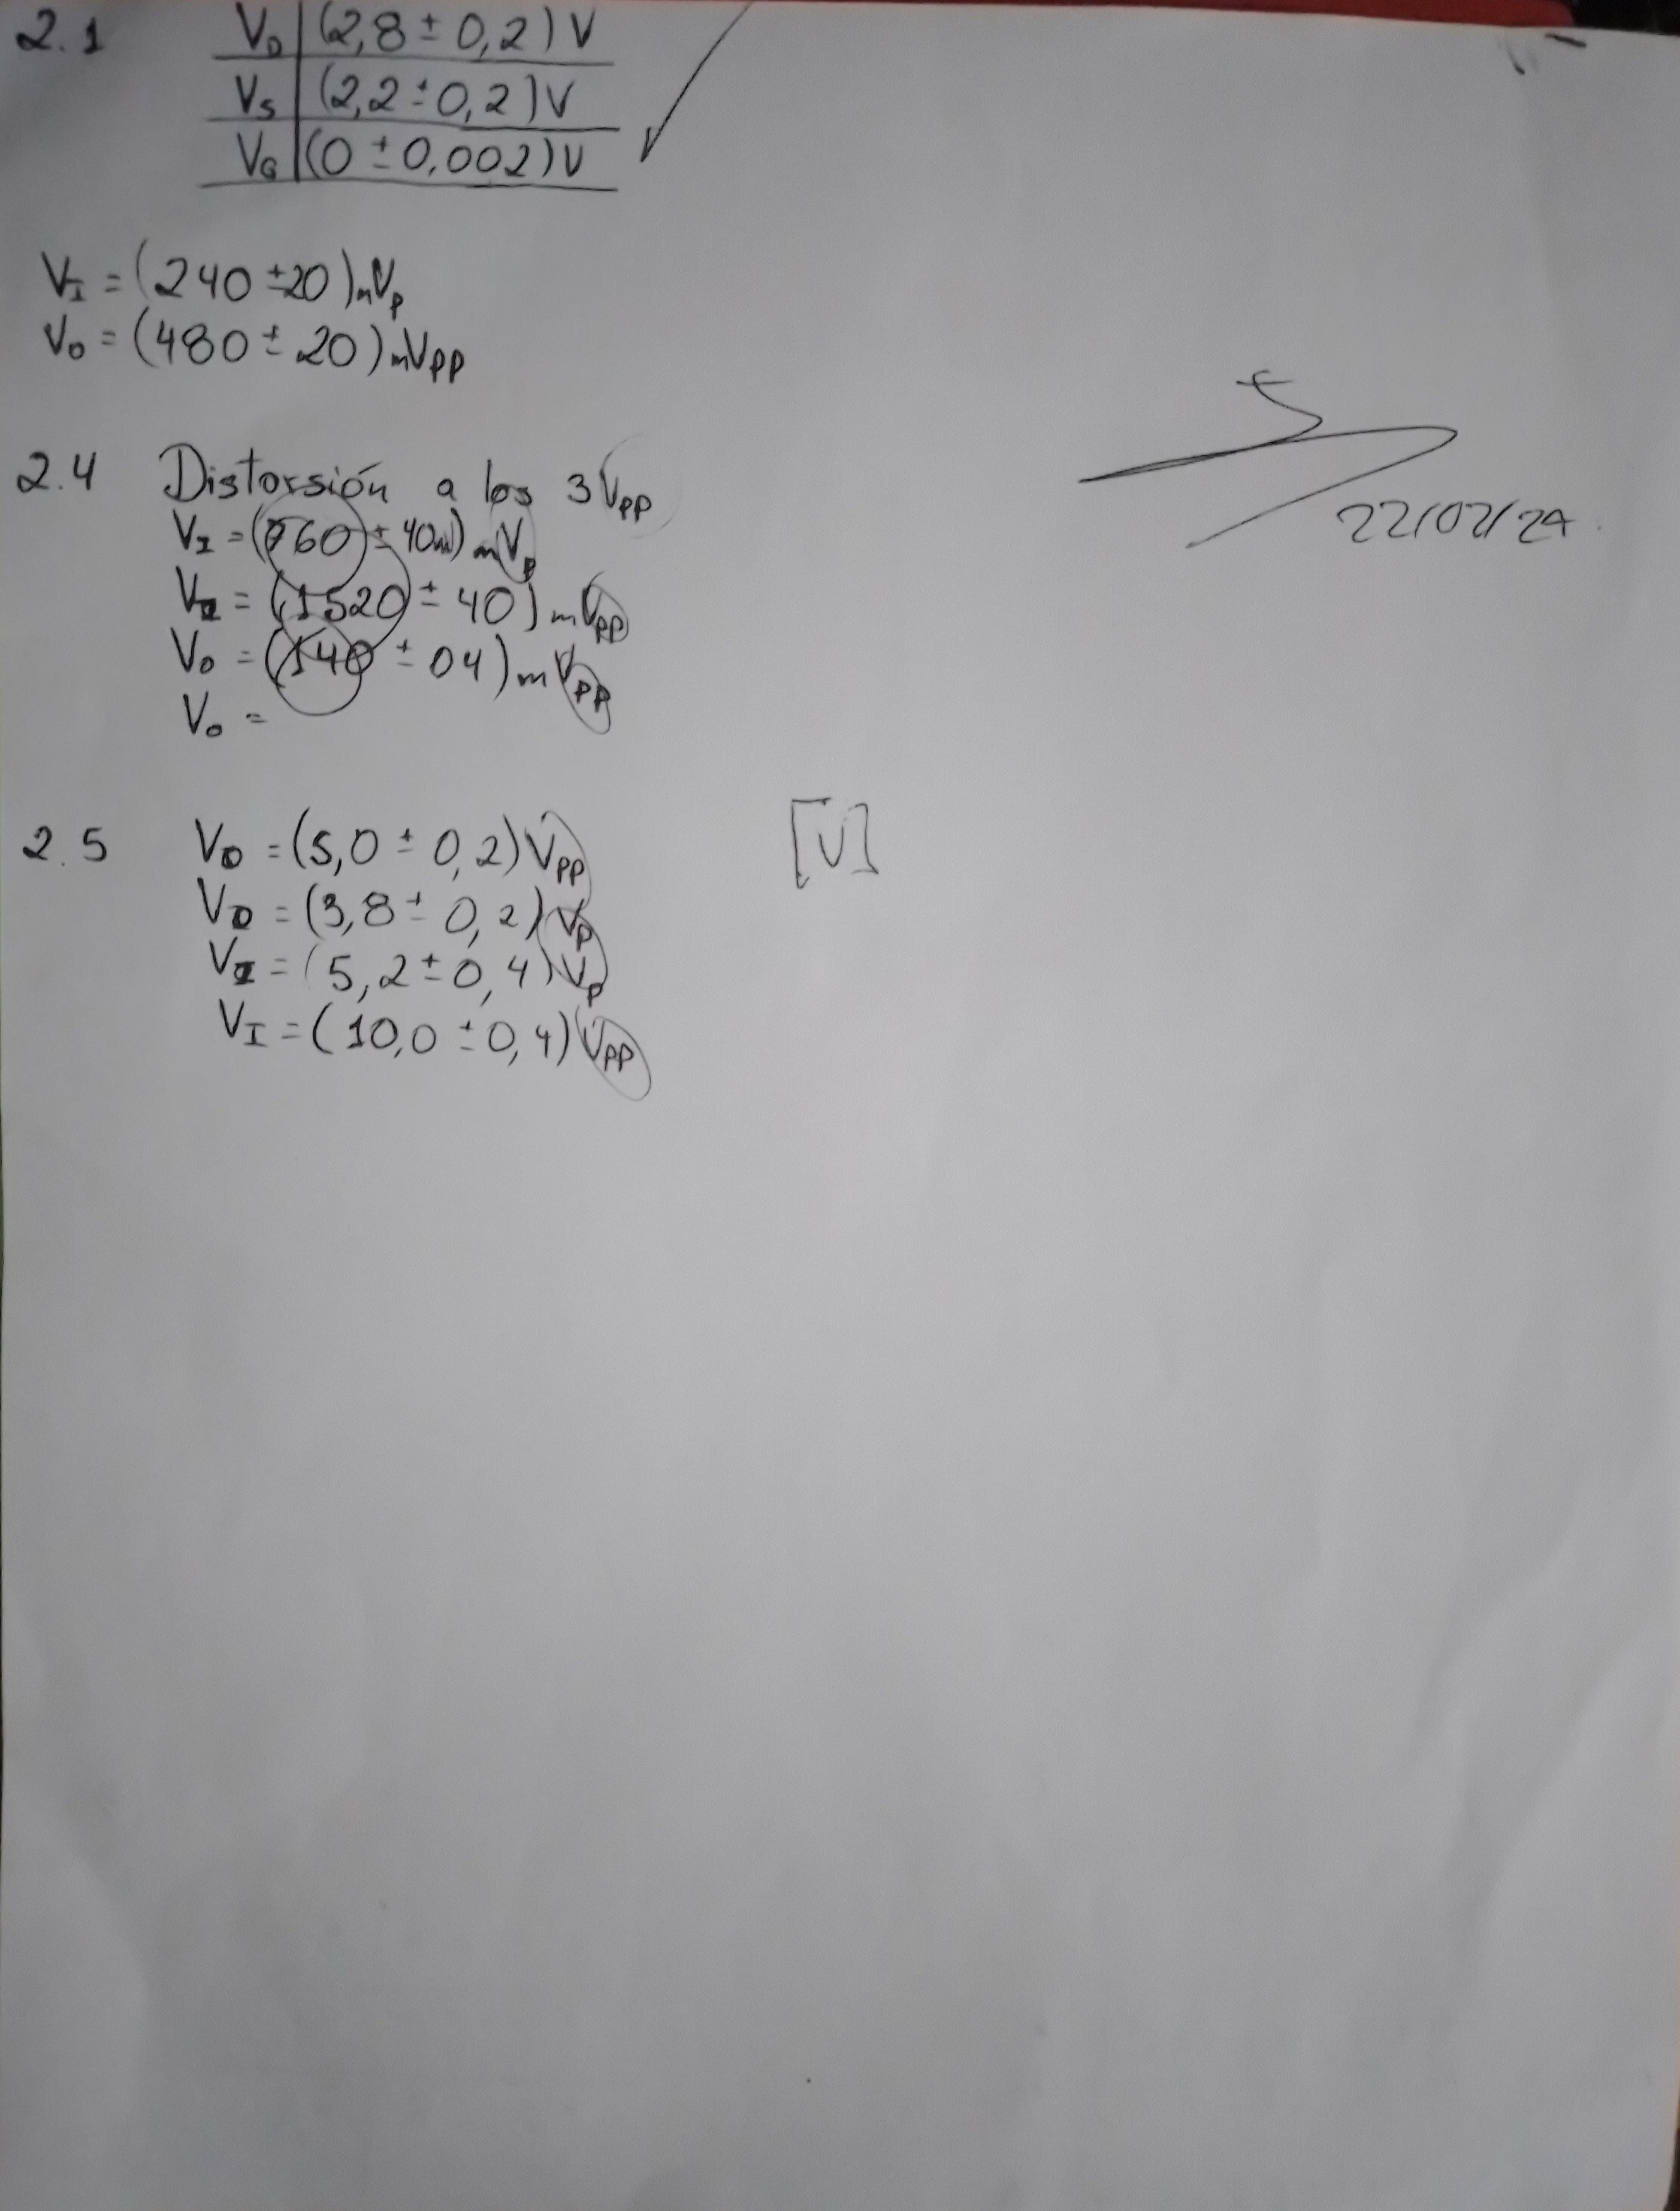 2.1
V_D (2,8 ± 0,2) V
V_S (2,2 ± 0,2) V
V_G (0 ± 0,002) V
V_I = (240 ± 20) mV_p
V_o = (480 ± 20) mV_PP
2.4 Distorsión a los 3 V_PP
V_I = (760 ± 40m) mV_p
V_I = (1520 ± 40) mV_PP
V_o = (140 ± 04) mV_PP
V_o =
22/02/24
2.5 V_O = (5,0 ± 0,2) V_PP
[V]
V_O = (3,8 ± 0,2) V_p
V_I = (5,2 ± 0,4) V_p
V_I = (10,0 ± 0,4) V_PP